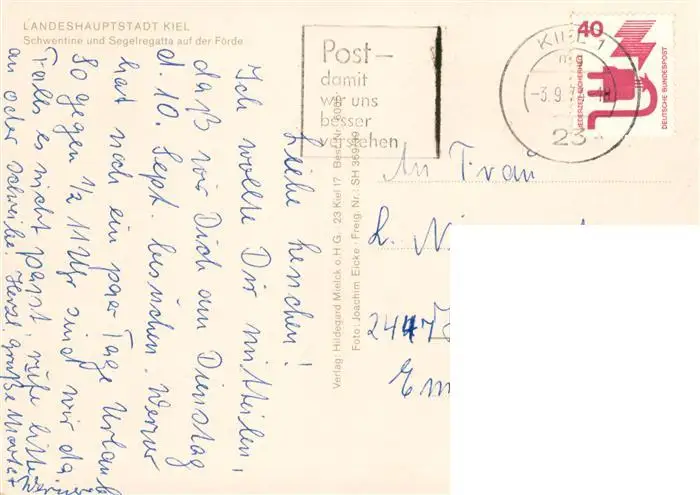 LANDESHAUPTSTADT KIEL
Schwentine und Segelregatta auf der Förde
Post-
damit
wir uns
besser
verstehen
KIEL 1
-3.9.7
23
40
JEDERZEIT SICHERHEIT
DEUTSCHE BUNDESPOST
Verlag: Hildegard Mielck o.H.G. · 23 Kiel 17 Best.-Nr.
Foto: Joachim Eicke · Freig. Nr.: SH 369/39
Liebe Lenchen!
Ich wollte Dir mitteilen,
daß wir Dich am Dienstag
d. 10. Sept. besuchen. Werner
hat noch ein paar Tage Urlaub
So gegen ½ 11 Uhr sind wir da
Falls es nicht passt, rufe bitte
an oder schreibe. Herzl. Grüße
Werner
An Frau
L. Ni
244
Em